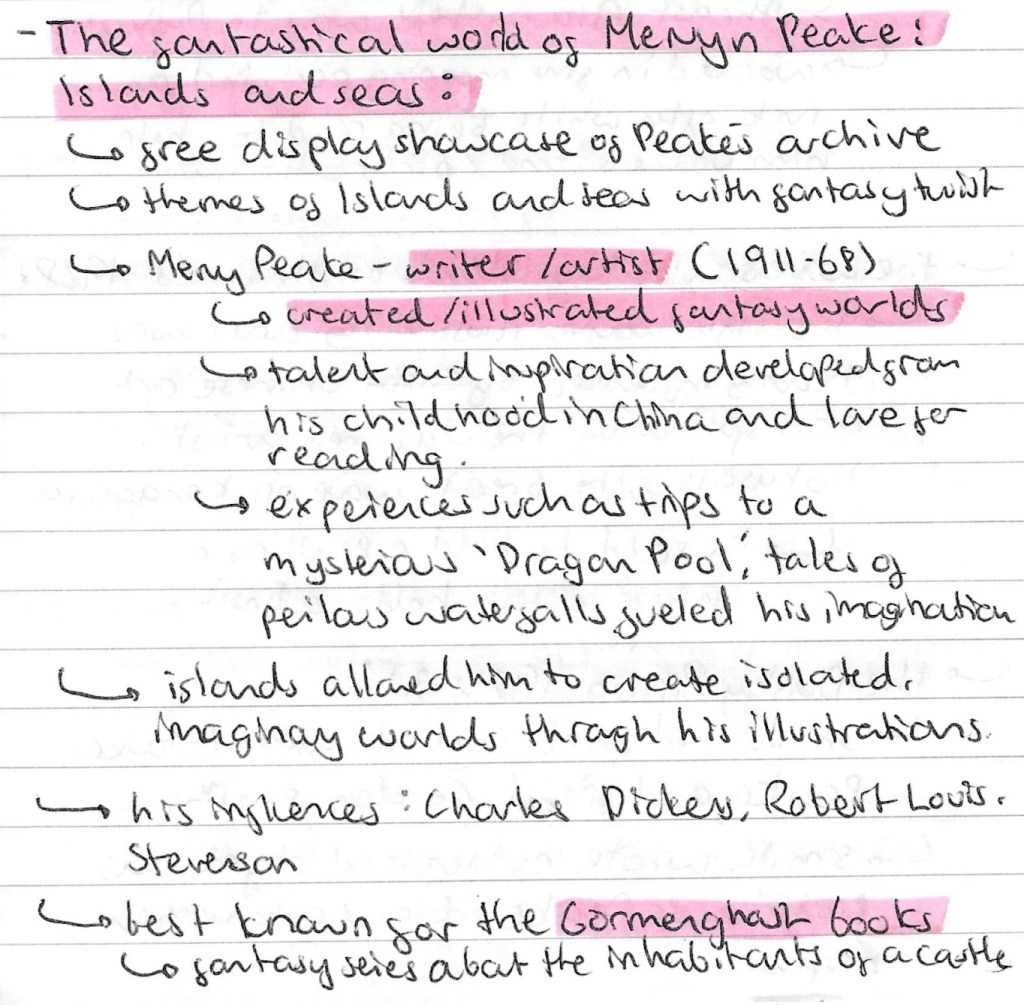 - The fantastical world of Mervyn Peake:
Islands and seas:
↳ free display showcase of Peake's archive
↳ themes of Islands and seas with fantasy twist
↳ Mervy Peake - writer/artist (1911-68)
↳ created/illustrated fantasy worlds
↳ talent and inspiration developed from
his childhood in China and love for
reading.
↳ experiences such as trips to a
mysterious 'Dragon Pool', tales of
perilous waterfalls fueled his imagination
↳ islands allowed him to create isolated,
imaginary worlds through his illustrations.
↳ his influences: Charles Dickens, Robert Louis.
Stevenson
↳ best known for the Gormenghast books
↳ fantasy series about the inhabitants of a castle